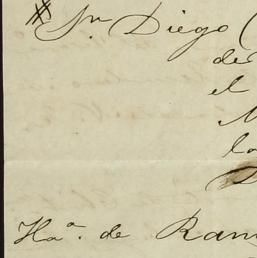 # Sr. Diego
de
el
la
Ha. de Ram